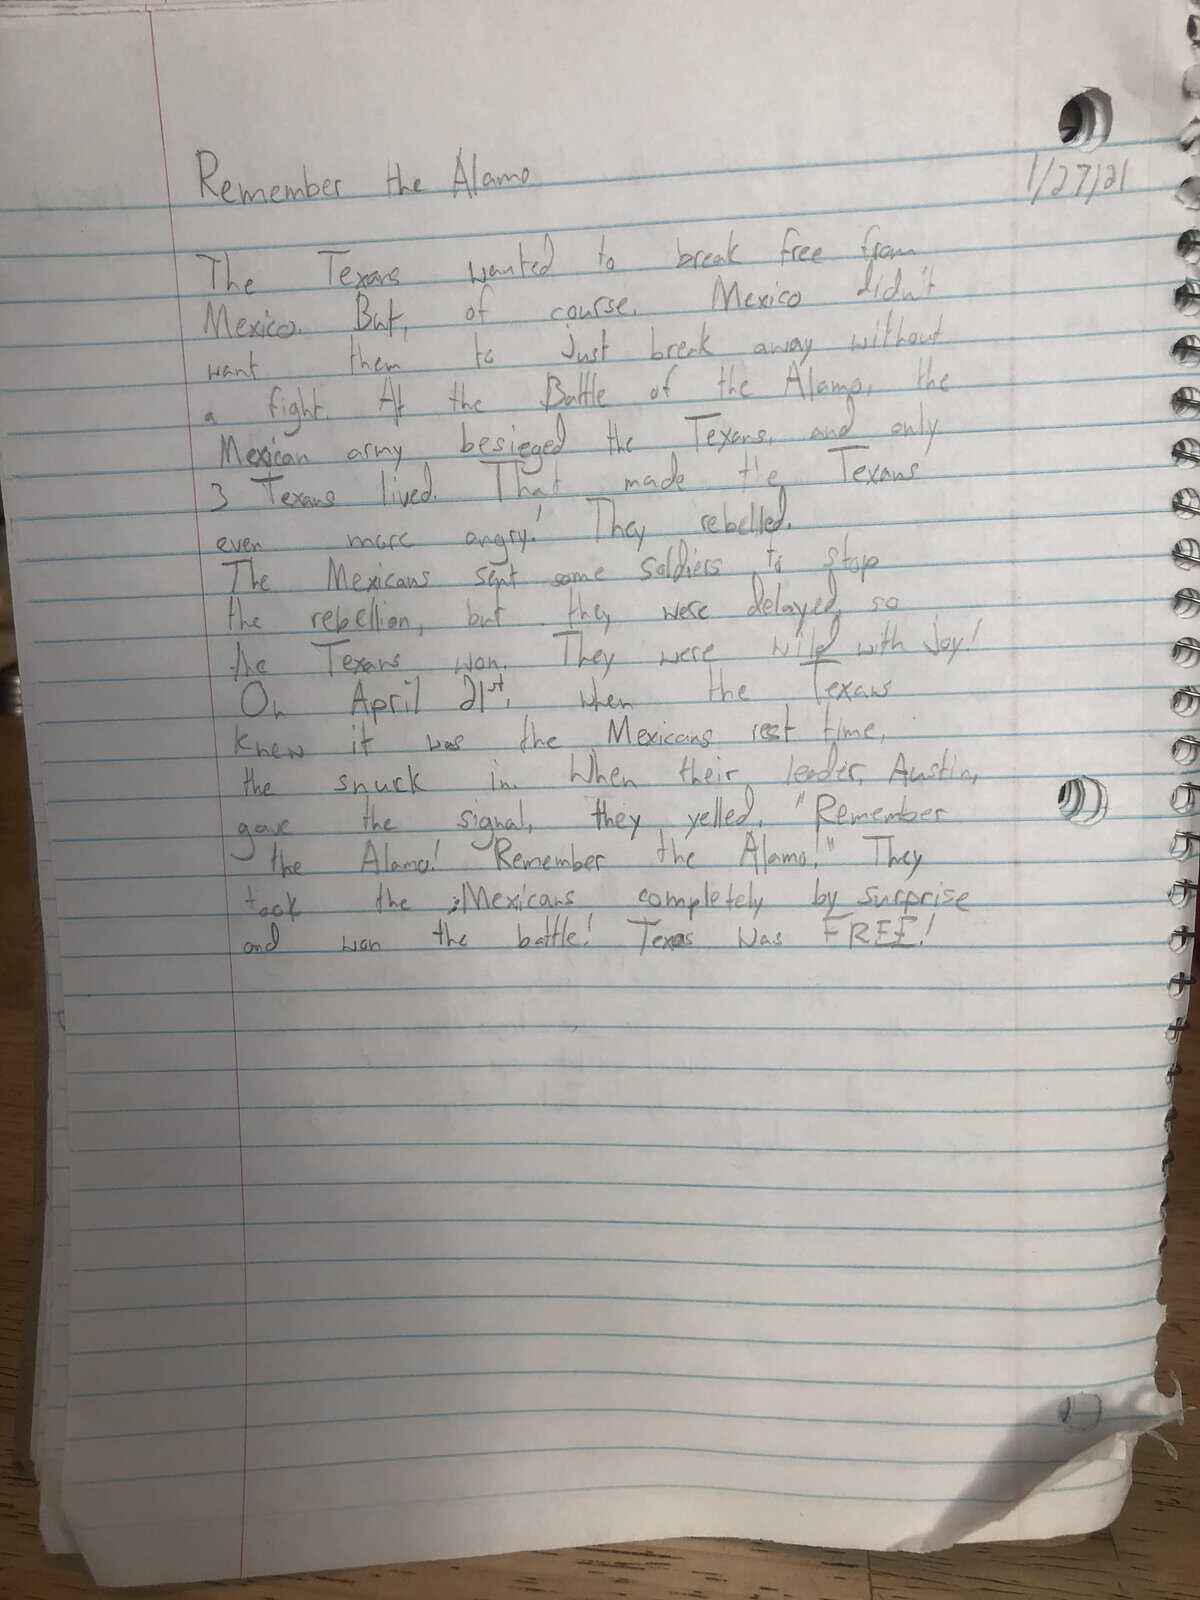 Remember the Alamo
1/27/21
The Texans wanted to break free from
Mexico. But, of course, Mexico didn't
want them to just break away without
a fight. At the Battle of the Alamo, the
Mexican army besieged the Texans, and only
3 Texans lived. That made the Texans
even more angry! They rebelled.
The Mexicans sent some soldiers to stop
the rebellion, but they were delayed, so
the Texans won. They were wild with joy!
On April 21st, when the Texans
knew it was the Mexicans rest time,
the snuck in. When their leader, Austin,
gave the signal, they yelled, "Remember
the Alamo! Remember the Alamo!" They
took the Mexicans completely by surprise
and won the battle! Texas was FREE!